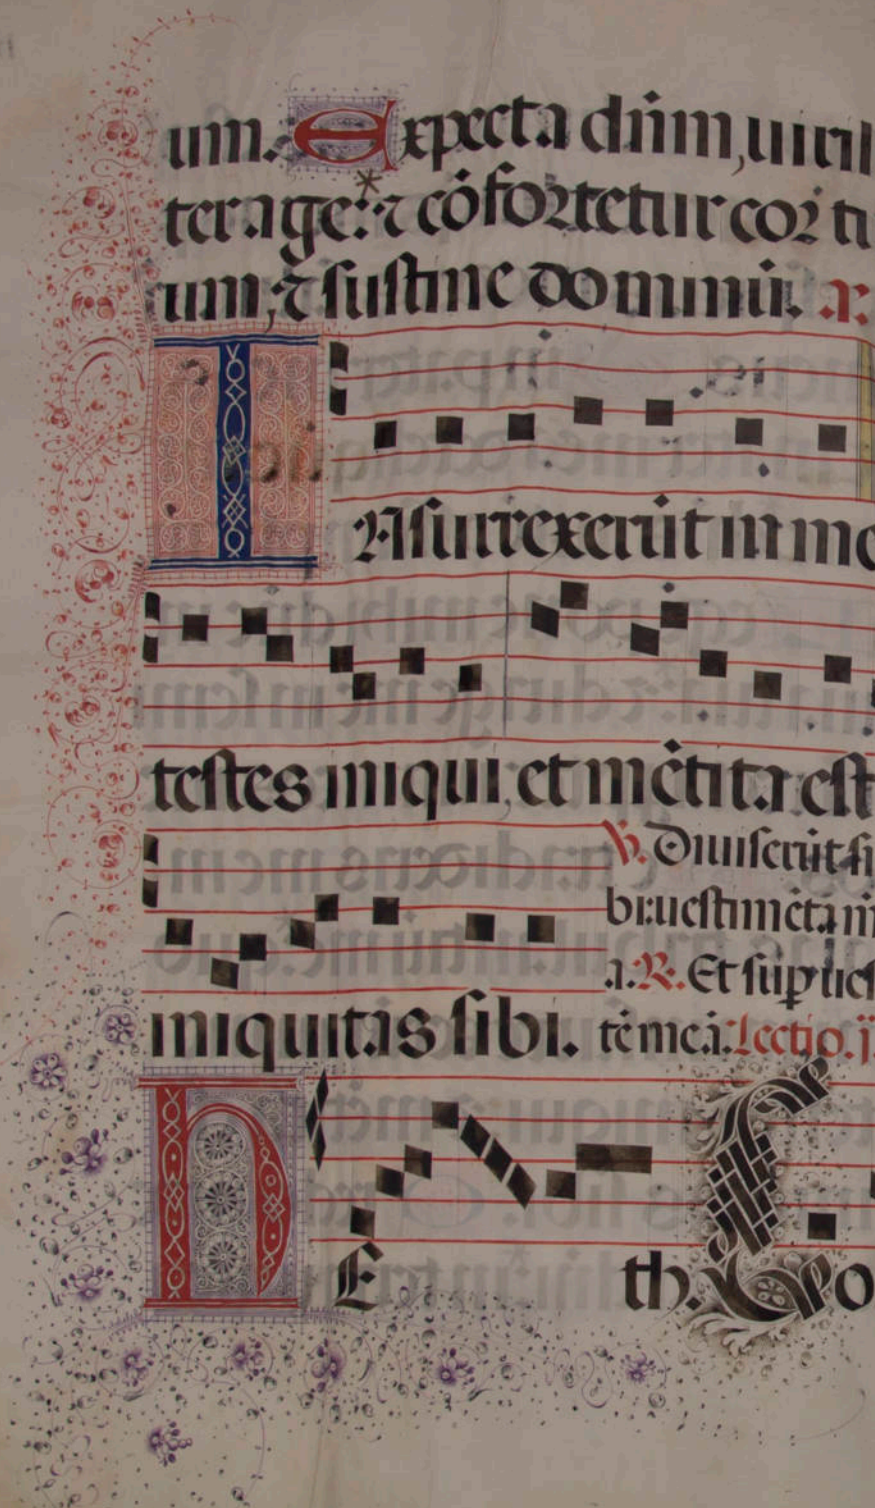 um. Expecta dñm, uiril
ter age: ⁊ cõfortetur cor tu
um, ⁊ sustine dominũ. a:
INsurrexerũt in me
testes iniqui, et mẽtita est
℣. Diuiserũt si
bi: uestimẽta m
a. ℟. Et sup ues
iniquitas sibi. tẽ meã. Lectio. ij.
HEth. Co